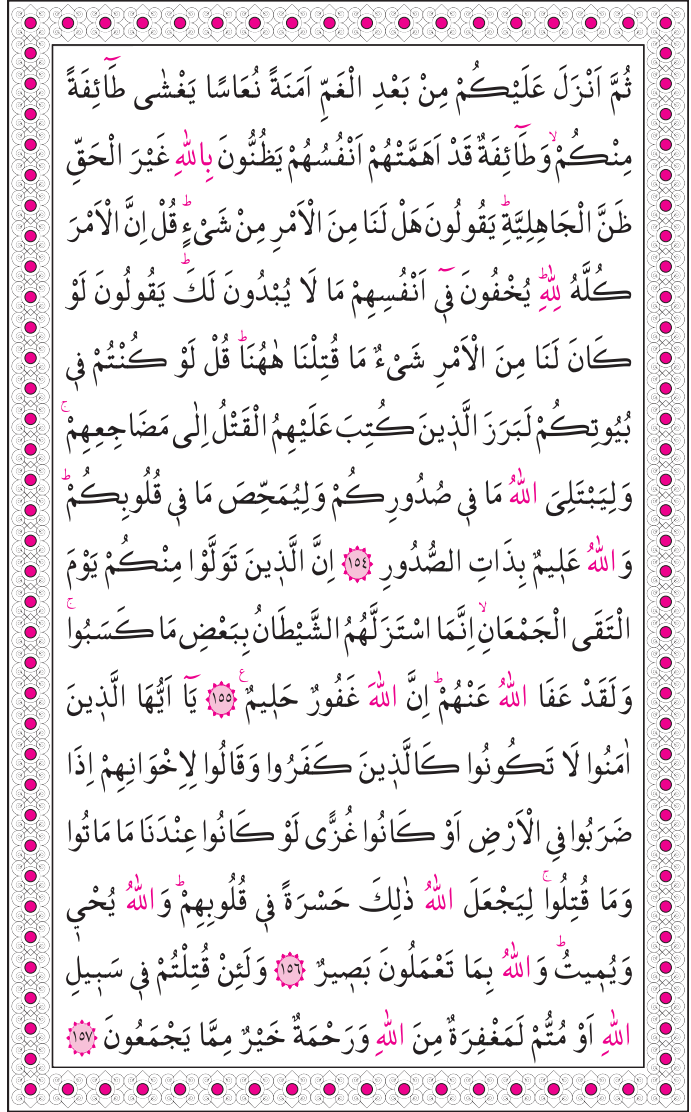 ثُمَّ اَنْزَلَ عَلَيْكُمْ مِنْ بَعْدِ الْغَمِّ اَمَنَةً نُعَاسًا يَغْشٰى طَٓائِفَةً
مِنْكُمْۙ وَطَٓائِفَةٌ قَدْ اَهَمَّتْهُمْ اَنْفُسُهُمْ يَظُنُّونَ بِاللّٰهِ غَيْرَ الْحَقِّ
ظَنَّ الْجَاهِلِيَّةِۜ يَقُولُونَ هَلْ لَنَا مِنَ الْاَمْرِ مِنْ شَیْءٍۜ قُلْ اِنَّ الْاَمْرَ
كُلَّهُ لِلّٰهِۜ يُخْفُونَ فٖٓي اَنْفُسِهِمْ مَا لَا يُبْدُونَ لَكَۜ يَقُولُونَ لَوْ
كَانَ لَنَا مِنَ الْاَمْرِ شَیْءٌ مَا قُتِلْنَا هٰهُنَاۜ قُلْ لَوْ كُنْتُمْ فٖي
بُيُوتِكُمْ لَبَرَزَ الَّذٖينَ كُتِبَ عَلَيْهِمُ الْقَتْلُ اِلٰى مَضَاجِعِهِمْۚ
وَلِيَبْتَلِیَ اللّٰهُ مَا فٖي صُدُورِكُمْ وَلِيُمَحِّصَ مَا فٖي قُلُوبِكُمْۜ
وَاللّٰهُ عَلٖيمٌ بِذَاتِ الصُّدُورِ ﴿١٥٤﴾ اِنَّ الَّذٖينَ تَوَلَّوْا مِنْكُمْ يَوْمَ
الْتَقَى الْجَمْعَانِۙ اِنَّمَا اسْتَزَلَّهُمُ الشَّيْطَانُ بِبَعْضِ مَا كَسَبُواۚ
وَلَقَدْ عَفَا اللّٰهُ عَنْهُمْۜ اِنَّ اللّٰهَ غَفُورٌ حَلٖيمٌࣖ ﴿١٥٥﴾ يَٓا اَيُّهَا الَّذٖينَ
اٰمَنُوا لَا تَكُونُوا كَالَّذٖينَ كَفَرُوا وَقَالُوا لِاِخْوَانِهِمْ اِذَا
ضَرَبُوا فِي الْاَرْضِ اَوْ كَانُوا غُزًّى لَوْ كَانُوا عِنْدَنَا مَا مَاتُوا
وَمَا قُتِلُواۚ لِيَجْعَلَ اللّٰهُ ذٰلِكَ حَسْرَةً فٖي قُلُوبِهِمْۜ وَاللّٰهُ يُحْيٖ
وَيُمٖيتُۜ وَاللّٰهُ بِمَا تَعْمَلُونَ بَصٖيرٌ ﴿١٥٦﴾ وَلَئِنْ قُتِلْتُمْ فٖي سَبٖيلِ
اللّٰهِ اَوْ مُتُّمْ لَمَغْفِرَةٌ مِنَ اللّٰهِ وَرَحْمَةٌ خَيْرٌ مِمَّا يَجْمَعُونَ ﴿١٥٧﴾